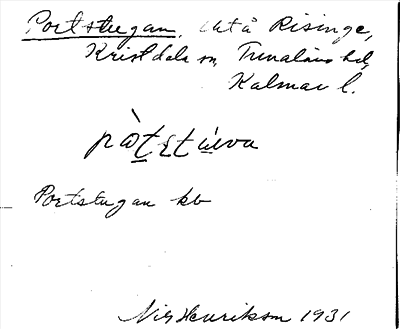 Portstugan, Utå Risinge,
Kristdala sn, Tunaläns hd,
Kalmar l.
Portstugan kb
Nils Henrikson 1931